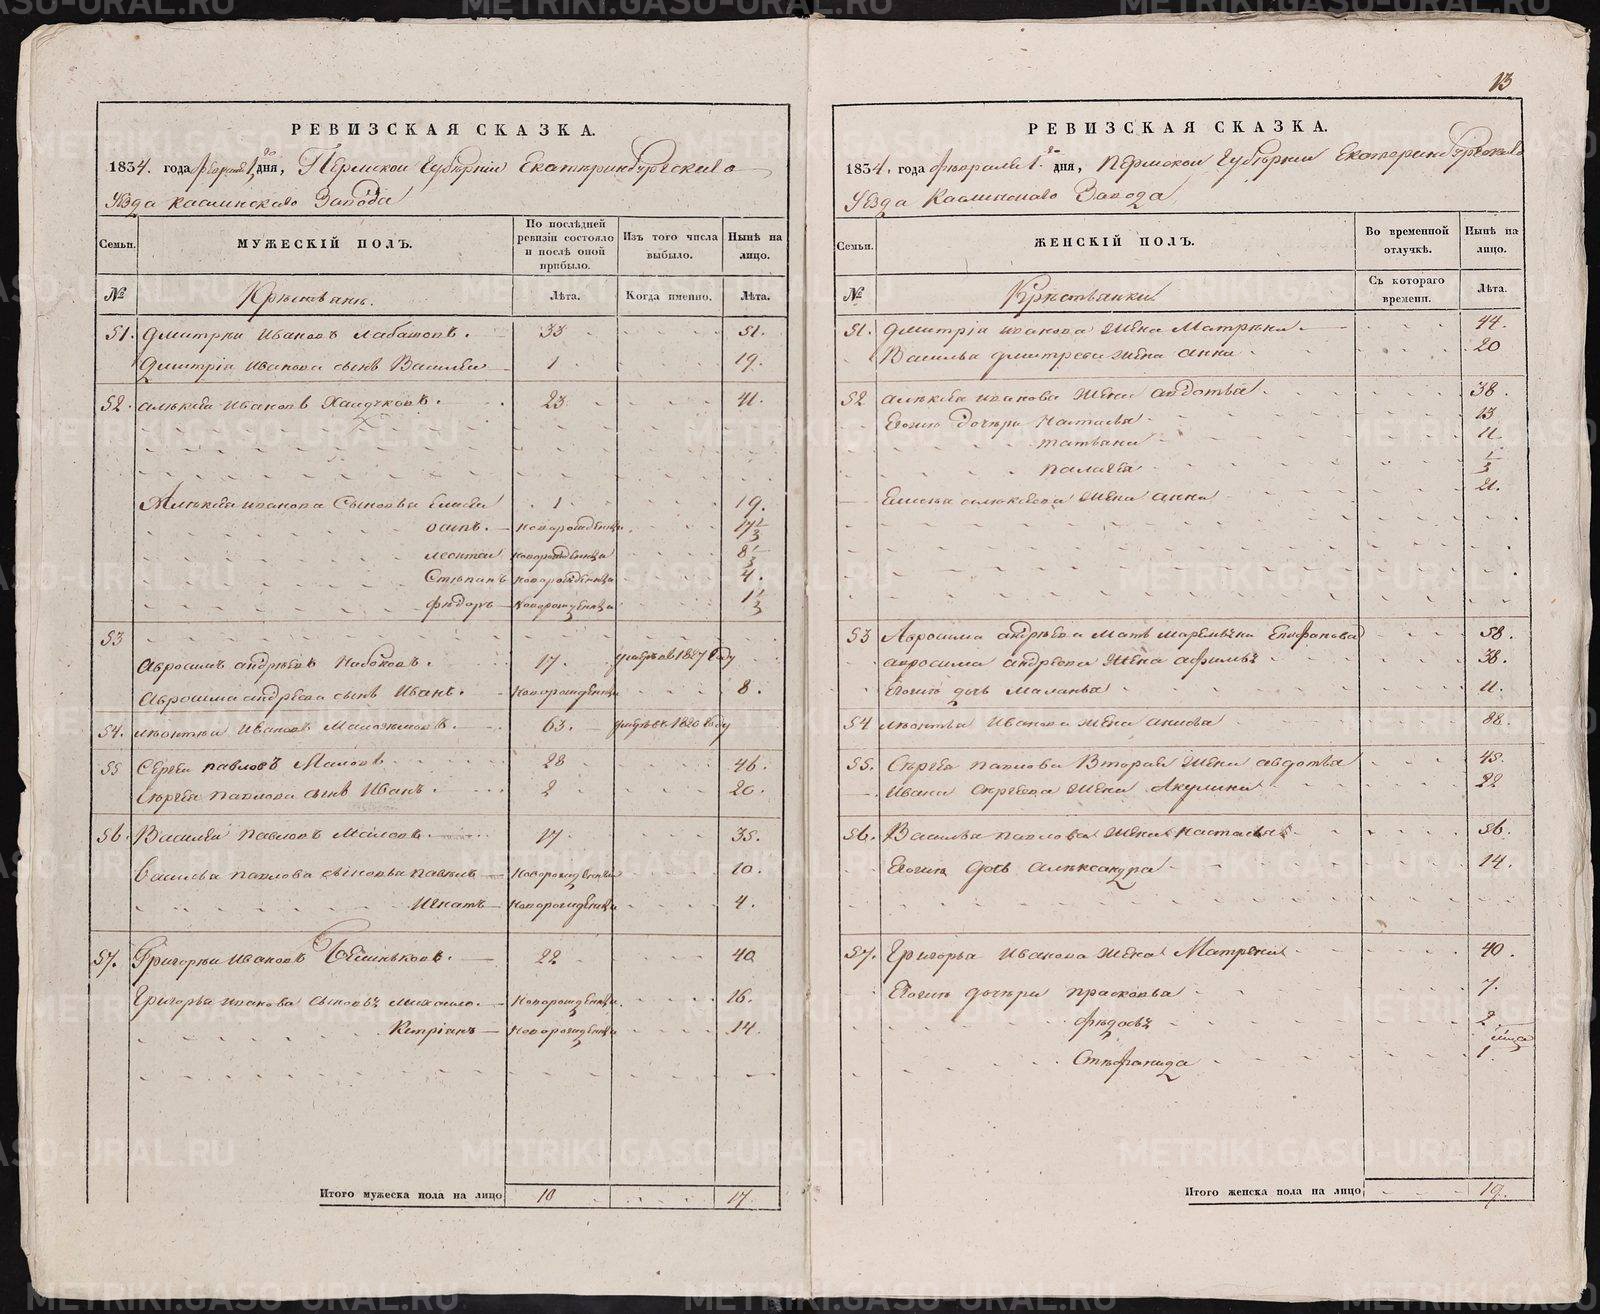 13
РЕВИЗСКАЯ СКАЗКА.
1834. года февраля 1го дня, Пермской Губернии Екатеринбургскаго
Уезда Каслинскаго Завода
Семьи.
МУЖЕСКІЙ ПОЛЪ.
По послѣдней ревизіи состояло и послѣ оной прибыло.
Изъ того числа выбыло.
Нынѣ на лицо.
№
Крестьяне.
Лѣта.
Когда именно.
Лѣта.
51. Дмитрий Ивановъ 33 51.
Дмитрія Иванова сынъ Василей 1 19.
52. Алексей Ивановъ 23 41.
Алексея Иванова сыновья Елисей 1 19.
Осипъ. новорожденъ 17 1/3
Леонтей новорожденъ 8 1/3
Степанъ новорожденъ 4.
Федоръ новорожденъ 1 1/3
53
Абросимъ Андреевъ Набоковъ. 17. умеръ въ 1827 году
Абросима Андреева сынъ Иванъ. новорожденъ 8.
54. Леонтей Ивановъ 63. умеръ въ 1826 году
55 Сергей Павловъ Маловъ 28 46.
Сергея Павлова сынъ Иванъ. 2 20.
56. Василей Павловъ Маловъ 17. 35.
Василья Павлова сыновья Павелъ новорожденъ 10.
Игнатъ новорожденъ 4.
57. Григорей Ивановъ 22 40
Григорья Иванова сыновья Михайло. новорожденъ 16.
Кипріанъ новорожденъ 14.
Итого мужеска пола на лицо 10 17
РЕВИЗСКАЯ СКАЗКА.
1834. года февраля 1го дня, Пермской Губернии Екатеринбургскаго
Уезда Каслинскаго Завода
Семьи.
ЖЕНСКІЙ ПОЛЪ.
Во временной отлучкѣ.
Нынѣ на лицо.
№
Крестьянки
Съ котораго времени.
Лѣта.
51. Дмитрія Иванова жена Матрена 44.
Василья Дмитрева жена Анна 20
52 Алексея Иванова жена Авдотья 38.
Егоже дочери Настасья 13
Татьяна 11
Палагея 1/3
Елисея Алексеева жена Анна 21.
53 Абросима Андреева мать Маремьяна Епифанова 58.
Абросима Андреева жена Афимья 38.
Егоже дочь Маланья 11.
54 Леонтья Иванова жена Анисья 88.
55. Сергея Павлова вторая жена Авдотья 45.
Ивана Сергеева жена Акулина 22
56. Василья Павлова жена Настасья 56.
Егоже дочь Александра 14.
57. Григорья Иванова жена Матрена 40.
Егоже дочери Прасковья 7.
Федосья 2
Стефанида 1
Итого женска пола на лицо 19.
METRIKI.GASO-URAL.RU